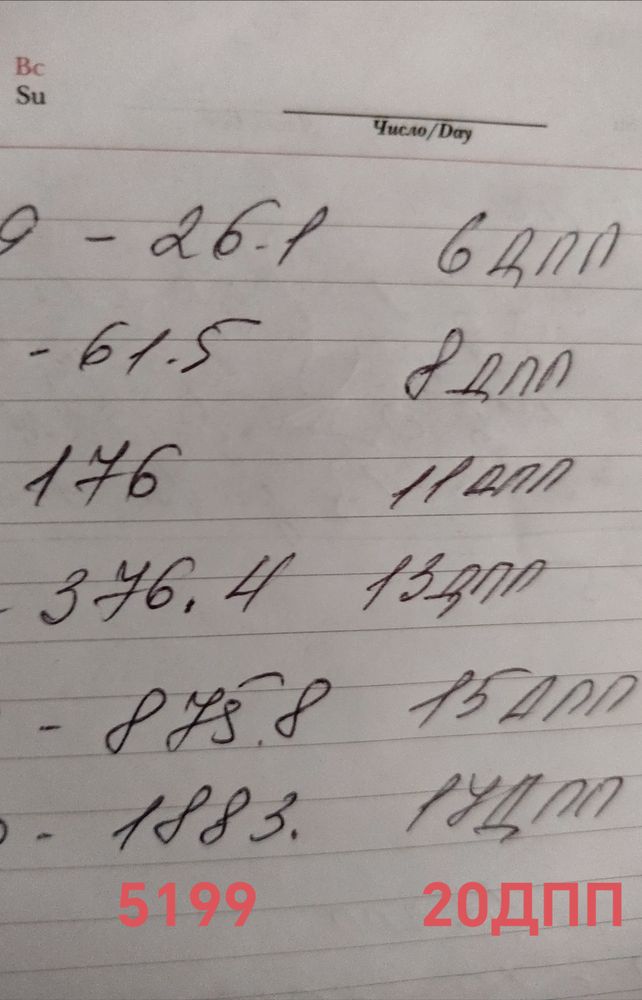 Вс
Su
Число/Day
9 - 26.1 6 ДПП
- 61.5 8 ДПП
176 11 ДПП
- 376.4 13 ДПП
- 875.8 15 ДПП
- 1883. 17 ДПП
5199 20ДПП